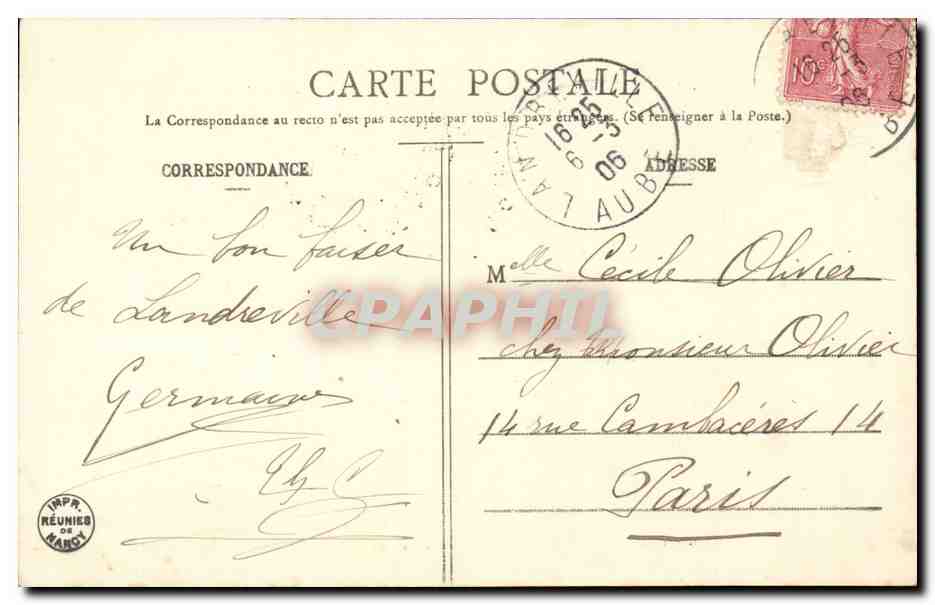 CARTE POSTALE
La Correspondance au recto n'est pas acceptée par tous les pays étrangers. (Se renseigner à la Poste.)
CORRESPONDANCE
ADRESSE
LANDREVILLE
16 25
6 3
06
AUBE
10c
16 25
Un bon baiser
de Landreville
Germaine
Melle Cécile Olivier
chez Monsieur Olivier
14 rue Cambacérès 14
Paris
CPAPHIL
IMPR.
RÉUNIES
DE
NANCY